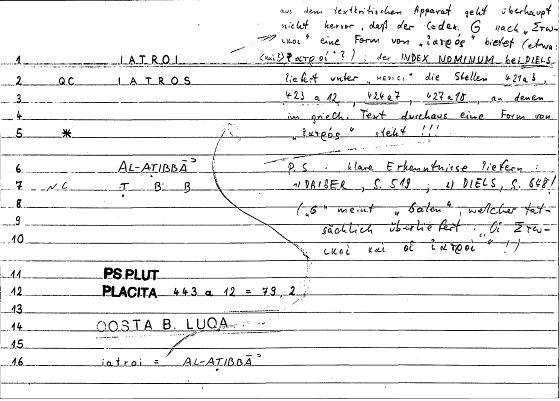 aus dem textkritischen Apparat geht überhaupt
nicht hervor, daß der Codex G nach „Στω-
ϊκοὶ" eine Form von „ἰατρός" bietet (etwa:
1 IATROI (καὶ?) ἰατροί ?) ; der INDEX NOMINUM bei DIELS
2 QC IATROS liefert unter „MEDICI" die Stellen 421a3,
3 423 a 12, 424a7, 427a18, an denen
4 im griech. Text durchaus eine Form von
5 * „ἰατρός" steht !!!
6 AL-ATIBBĀʾ P.S.: klare Erkenntnisse liefern:
7 N.C ṬBB 1) DAIBER, S. 519 ; 2) DIELS, S. 648!
8 („G" meint „Galen", welcher tat-
9 sächlich überliefert: „Οἱ Στω-
10 ϊκοὶ καὶ οἱ ἰατροὶ" !)
11 PS PLUT
12 PLACITA 443 a 12 = 79, 2
13
14 QOSTA B. LUQA
15
16 iatroi = AL-AṬIBBĀʾ